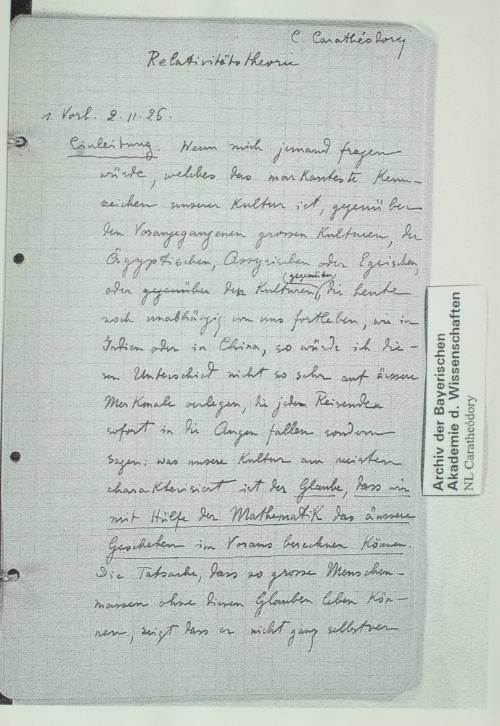 C. Carathéodory
Relativitätstheorie
1. Vorl. 2.11.26.
Einleitung. Wenn mich jemand fragen
würde, welches das markanteste Kenn-
zeichen unserer Kultur ist, gegenüber
den Vorangegangenen grossen Kulturen, der
Ägyptischen, Assyrischen oder Egeischen,
(gegenüber)
oder gegenüber den Kulturen, die heute
noch unabhängig von uns fortleben, wie in
Indien oder in China, so würde ich die-
sen Unterschied nicht so sehr auf äussere
Merkmale verlegen, die jedem Reisenden
sofort in die Augen fallen sondern
sagen: was unsere Kultur am meisten
charakterisiert ist der Glaube, dass wir
mit Hülfe der Mathematik das äussere
Geschehen im Voraus berechnen können.
Die Tatsache, dass so grosse Menschen-
massen ohne diesen Glauben leben kön-
nen, zeigt dass er nicht ganz selbstver
Archiv der Bayerischen
Akademie d. Wissenschaften
NL Carathéodory